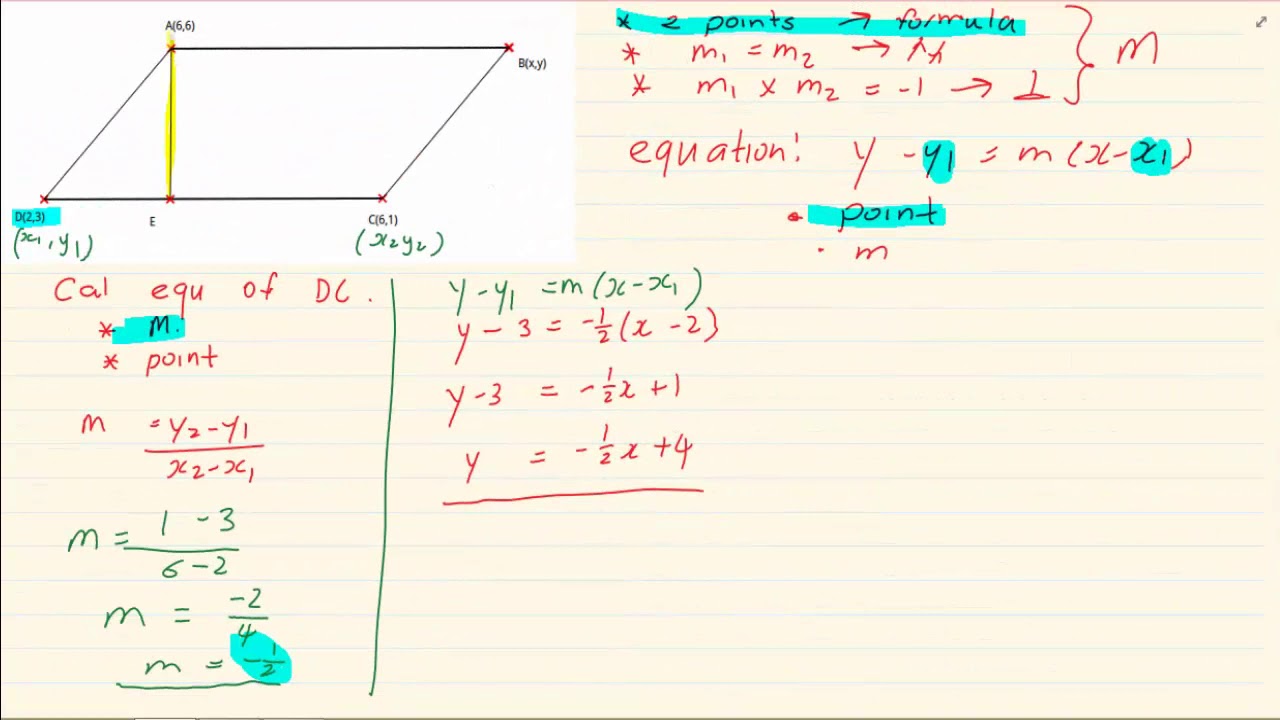 A(6,6)
B(x,y)
D(2,3)
E
C(6,1)
(x₁, y₁)
(x₂ y₂)
* 2 points → formula
* m₁ = m₂ →
* m₁ × m₂ = -1 → ⊥
} m
equation: y - y₁ = m(x - x₁)
• point
• m
Cal equ of DC.
* M.
* point
m = y₂ - y₁
x₂ - x₁
m = 1 - 3
6 - 2
m = -2
4
m = -1/2
y - y₁ = m(x - x₁)
y - 3 = -1/2(x - 2)
y - 3 = -1/2x + 1
y = -1/2x + 4